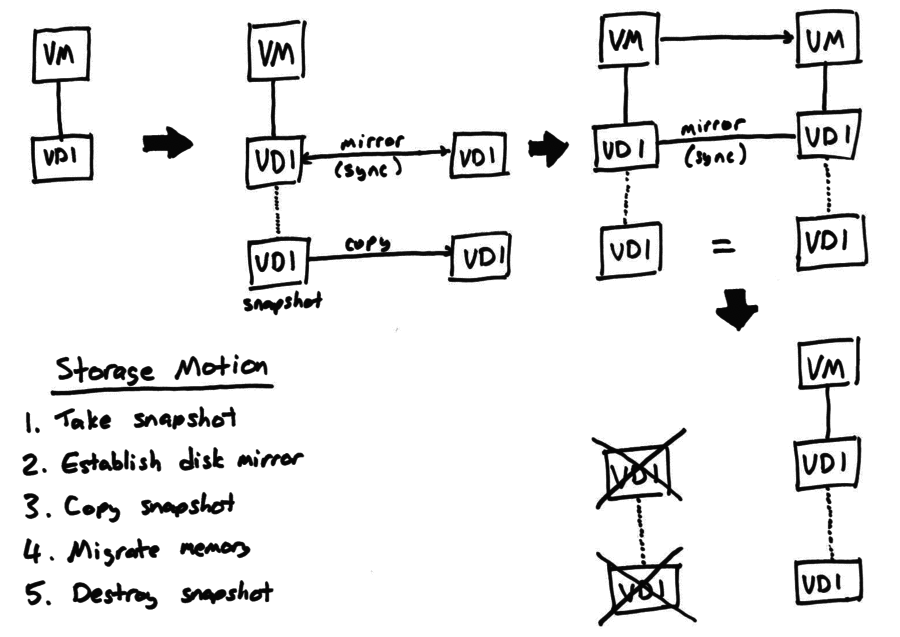 VM
VDI
VM
VDI
mirror
(sync)
VDI
VDI
snapshot
copy
VDI
VM
VM
VDI
mirror
(sync)
VDI
VDI
=
VDI
Storage Motion
1. Take snapshot
2. Establish disk mirror
3. Copy snapshot
4. Migrate memory
5. Destroy snapshot
VDI
VDI
VM
VDI
VDI